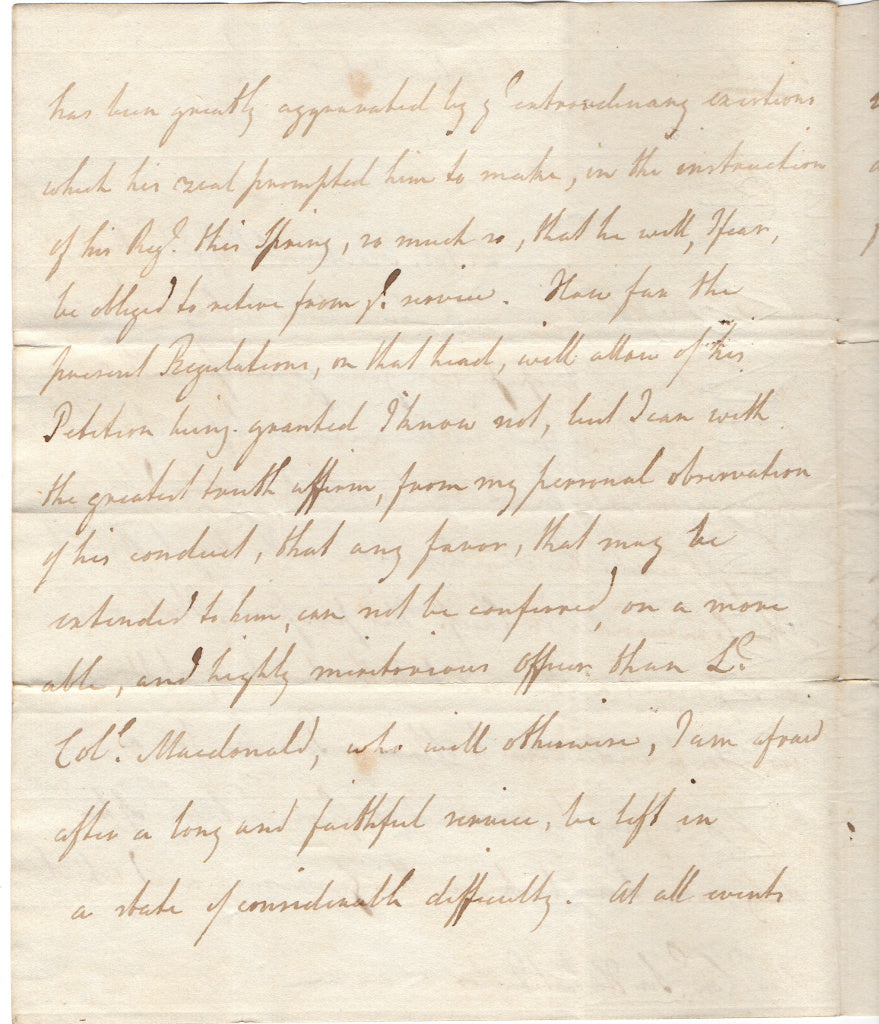 has been greatly aggravated by yᵉ extraordinary exertions
which his zeal prompted him to make, in the instruction
of his Regᵗ. this Spring, so much so, that he will, I fear,
be obliged to retire from yᵉ. service. How far the
present Regulations, on that head, will allow of his
Petition being granted I know not, but I can with
the greatest truth affirm, from my personal observation
of his conduct, that any favor, that may be
extended to him, can not be conferred, on a more
able, and highly meritorious officer than Lᵗ.
Colˡ. Macdonald, who will otherwise, I am afraid
after a long and faithful service, be left in
a state of considerable difficulty. At all events